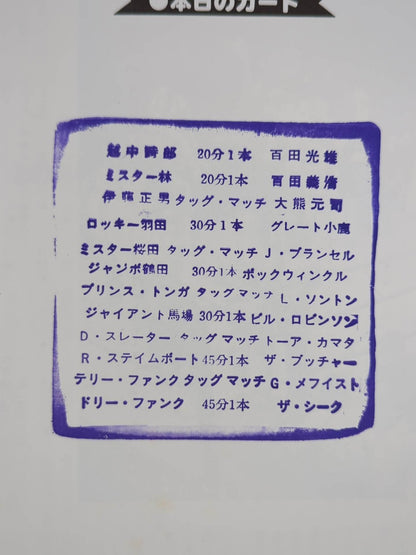 ●本日のカード
越中詩郎 20分1本 百田光雄
ミスター林 20分1本 百田義浩
伊藤正男 タッグ・マッチ 大熊元司
ロッキー羽田 30分1本 グレート小鹿
ミスター桜田 タッグ・マッチ J・ブランゼル
ジャンボ鶴田 30分1本 ボックウィンクル
プリンス・トンガ タッグマッチ L・ソントン
ジャイアント馬場 30分1本 ビル・ロビンソン
D・スレーター タッグマッチ トーア・カマタ
R・ステイムボート 45分1本 ザ・ブッチャー
テリー・ファンク タッグマッチ G・メフイスト
ドリー・ファンク 45分1本 ザ・シーク